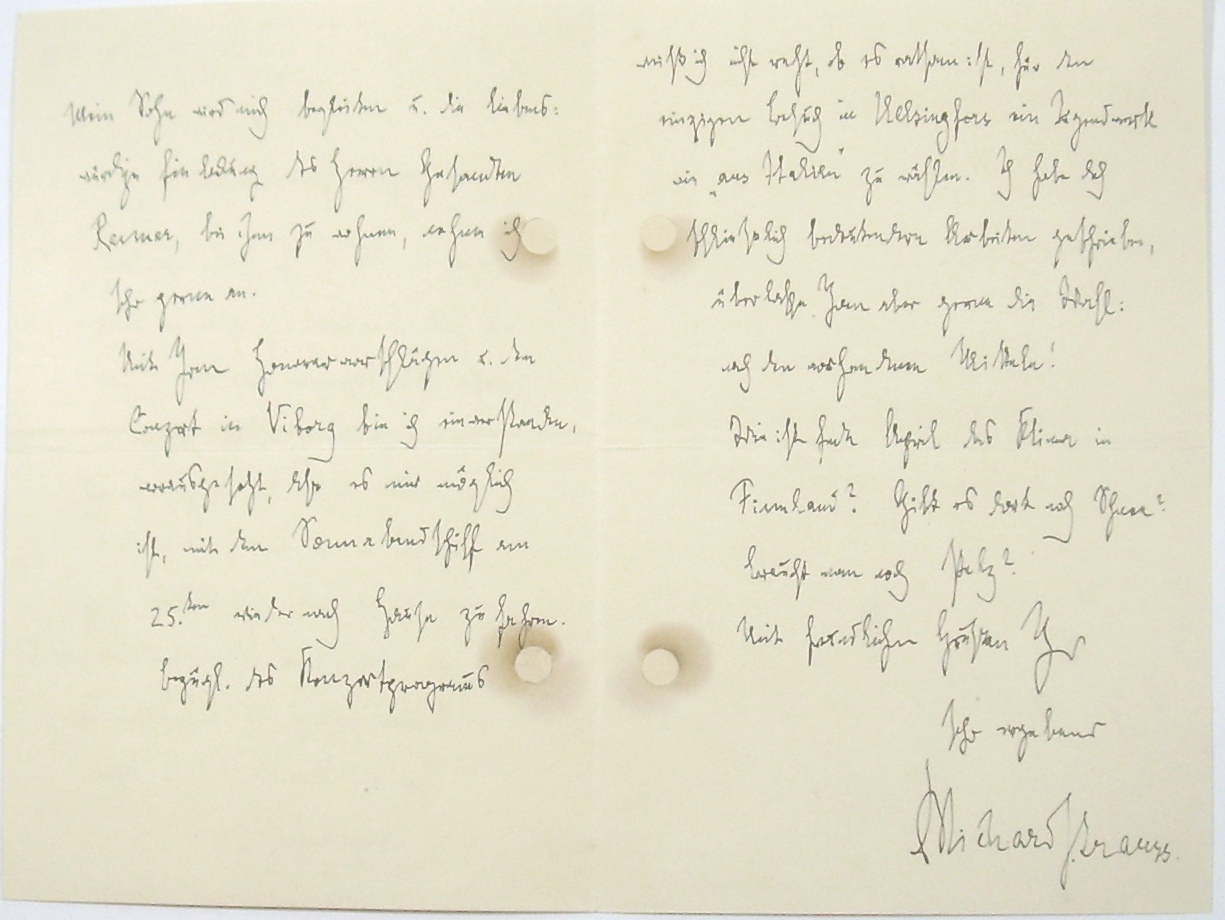 Mein Sohn wird mich begleiten u. die liebens:
würdige Einladung des Herrn Gesandten
Renner, bei ihm zu wohnen, nehme ich
sehr gerne an.
Mit Ihren Honorarvorschlägen u. dem
Conzert in Viborg bin ich einverstanden,
vorausgesetzt, dass es mir möglich
ist, mit dem Sonnabendschiff am
25.ten wieder nach Hause zu fahren.
Bezügl. des Konzertprogramms
weiß ich nicht recht, ob es ratsam ist, für den
einzigen Besuch in Helsingfors ein Jugendwerk
wie „aus Italien" zu wählen. Ich habe doch
schließlich bedeutendere Arbeiten geschrieben,
überlasse Ihnen aber gerne die Wahl:
nach den vorhandenen Mitteln!
Wie ist Ende April das Klima in
Finnland? Gibt es dort noch Schnee?
braucht man noch Pelz?
Mit freundlichen Grüßen Ihr
sehr ergebener
Richard Strauss.